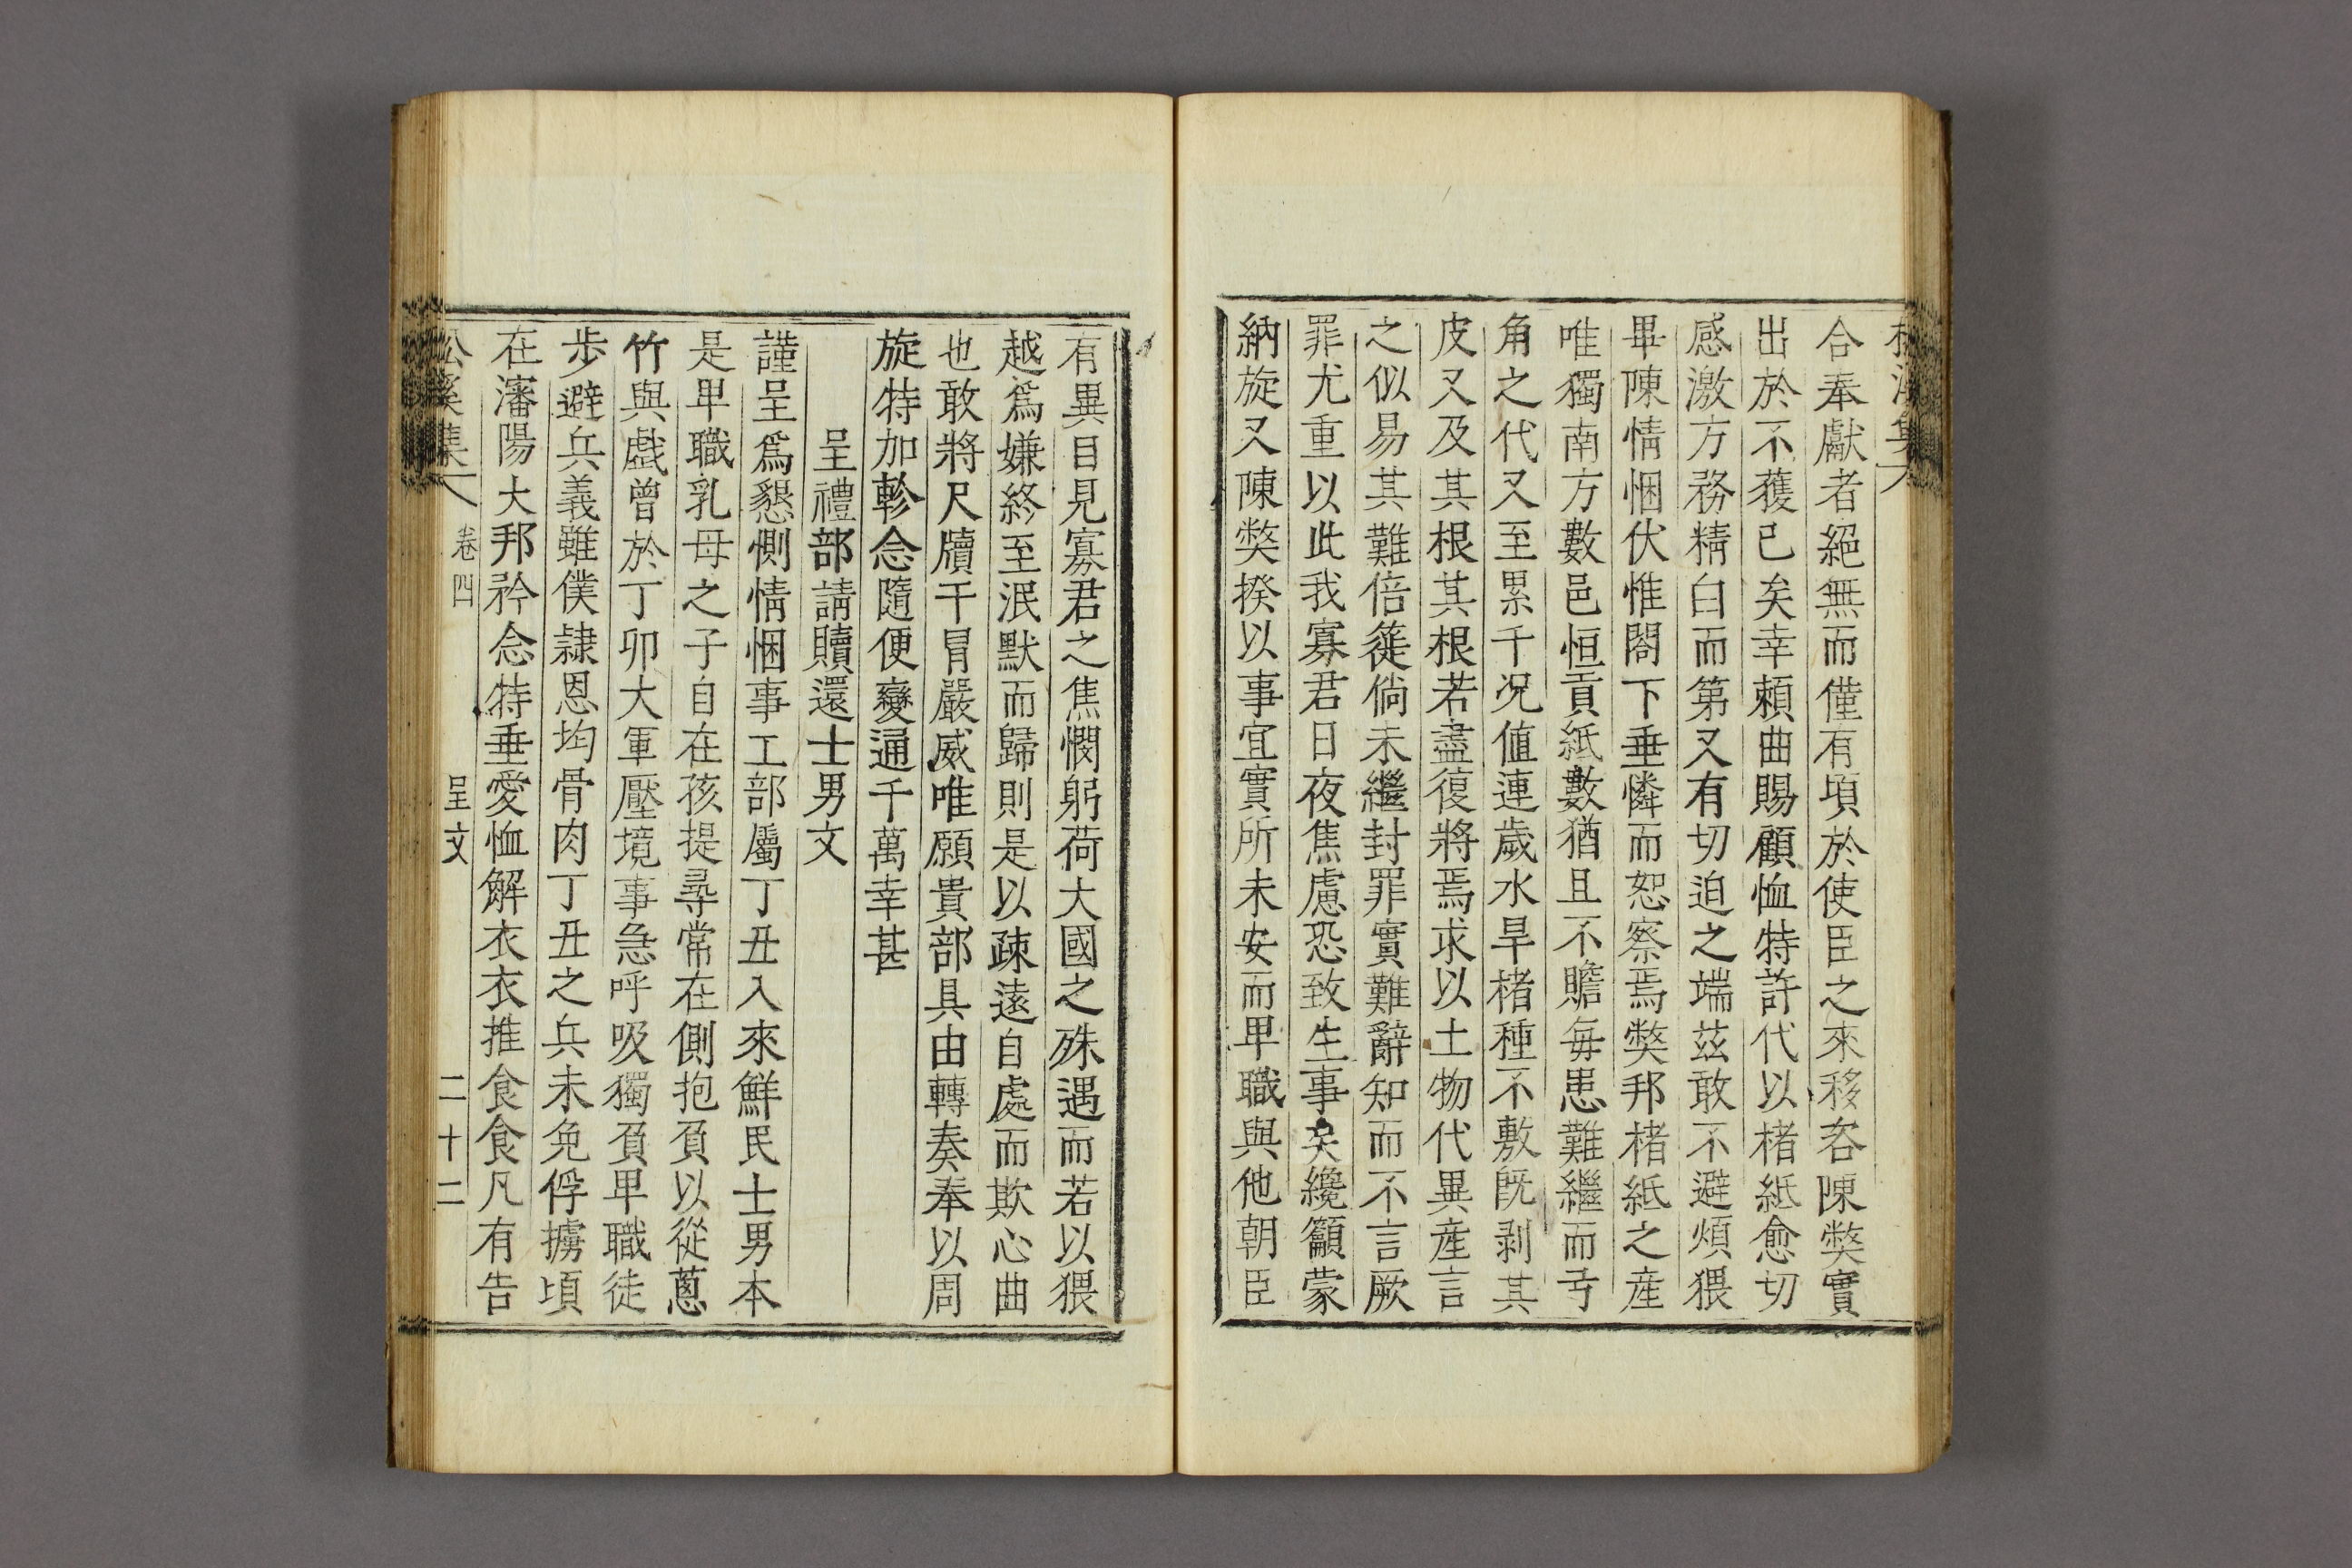 合奉獻者絕無而僅有頃於使臣之來移咨陳獘實
出於不獲已矣幸賴曲賜顧恤特許代以楮紙愈切
感激方務精白而第又有切迫之端茲敢不避煩猥
畢陳情悃伏惟閤下垂憐而恕察焉獘邦楮紙之産
唯獨南方數邑恒貢紙數猶且不贍每患難繼而
角之代又至累千况値連歲水旱楮種不敷旣剥其
皮又及其根其根若盡復將焉求以土物代異産言
之似易其難倍蓰倘未繼封罪實難辭知而不言厥
罪尤重以此我寡君日夜焦慮恐致生事矣纔籲蒙
納旋又陳獘揆以事宜實所未安而卑職與他朝臣
有異目見寡君之焦憫躬荷大國之殊遇而若以猥
越爲嫌終至泯默而歸則是以疎遠自處而欺心曲
也敢將尺牘干冒嚴威唯願貴部具由轉奏奉以周
旋特加軫念隨便變通千萬幸甚
呈禮部請贖還士男文
謹呈爲懇惻情悃事工部屬丁丑入來鮮民士男本
是卑職乳母之子自在孩提尋常在側抱負以從蔥
竹與戲曾於丁卯大軍壓境事急呼吸獨負卑職徒
步避兵義雖僕隷恩均骨肉丁丑之兵未免俘擄頃
在瀋陽大邦矜念特垂愛恤解衣衣推食食凡有告
松溪集 卷四 呈文 二十二